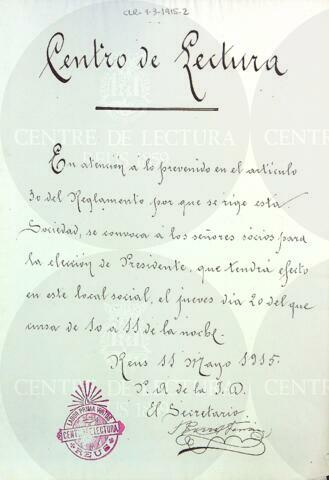 CLR-1-3-1915-2
Centro de Lectura
En atención á lo prevenido en el artículo
30 del Reglamento por que se rige esta
Sociedad, se convoca á los señores sócios para
la elección de Presidente, que tendrá efecto
en este local social, el jueves dia 20 del que
cursa de 10 á 11 de la noche.
Reus 11 Mayo 1915.
P. A. de la J. D.
El Secretario.
LABOR PRIMA VIRTUS
CENTRO LECTURA
REUS
CENTRE DE LECTURA